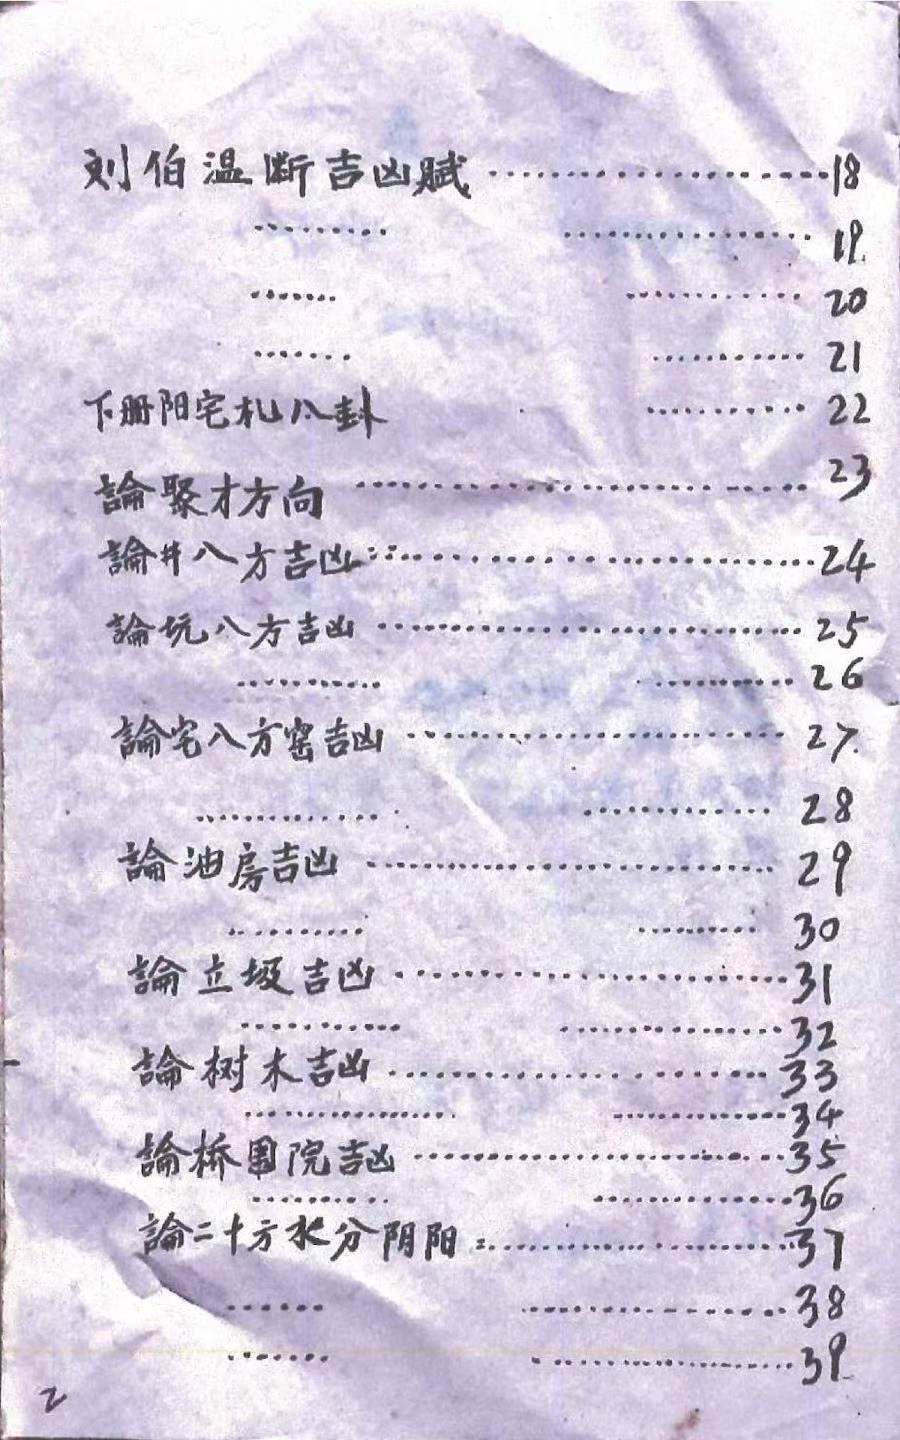 刘伯温断吉凶赋 ……………… 18
……… ……… 19
…… ……… 20
…… ……… 21
下册阳宅札八卦 ……… 22
論聚才方向 ……………… 23
論井八方吉凶 ……………… 24
論坑八方吉凶 ……………… 25
……… ……… 26
論宅八方窑吉凶 ……………… 27
……… ……… 28
論油房吉凶 ……………… 29
……… ……… 30
論立圾吉凶 ……………… 31
……… ……… 32
論树木吉凶 ……………… 33
……… ……… 34
論桥围院吉凶 ……………… 35
……… ……… 36
論二十方水分阴阳 ……………… 37
…… ……… 38
…… ……… 39
2